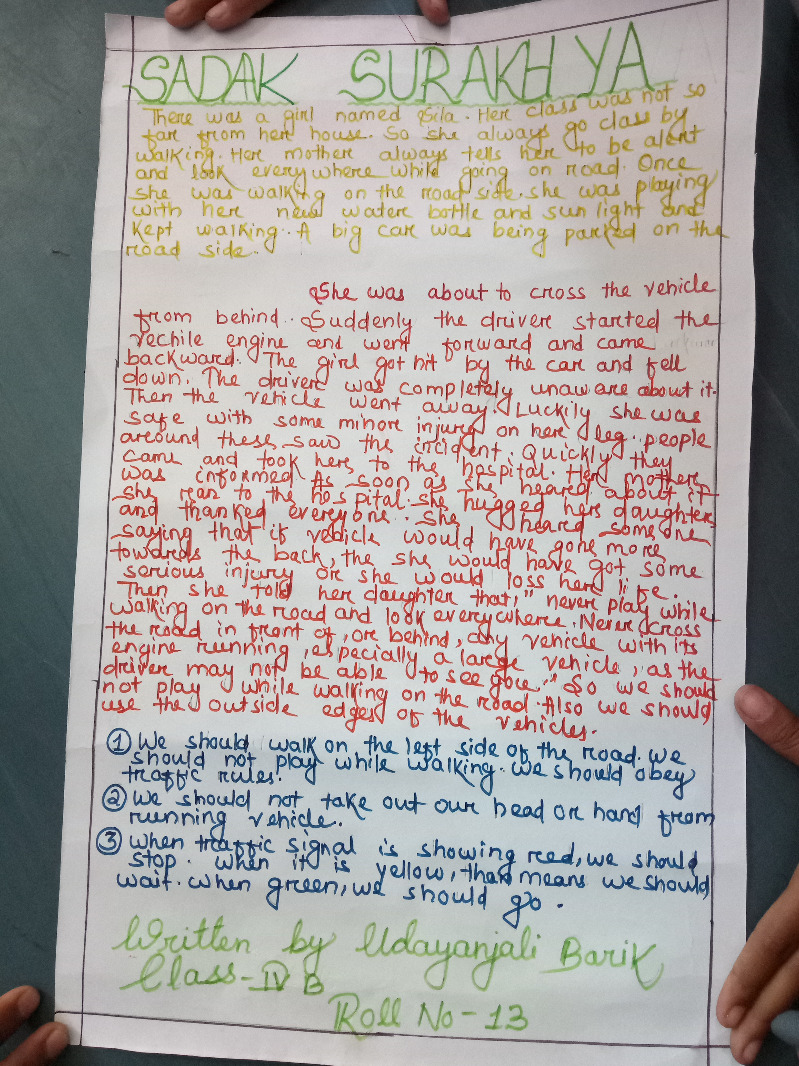 SADAK SURAKHYA
There was a girl named Sila. Her class was not so
far from her house. So she always go class by
walking. Her mother always tells her to be alert
and look everywhere while going on road. Once
she was walking on the road side. she was playing
with her new water bottle and sun light and
kept walking. A big car was being parked on the
road side.
She was about to cross the vehicle
from behind. Suddenly the driver started the
vechile engine and went forward and came
backward. The girl got hit by the car and fell
down. The driver was completely unaware about it.
Then the vehicle went away. Luckily she was
safe with some minore injury on her leg. people
around these saw the incident. Quickly they
came and took here, to the hospital. Her mother
was informed. As soon as she heared about it
she ran to the hospital. she hugged her daughter
and thanked everyone. She heared someone
saying that if vehicle would have gone more
towards the back, the she would have got some
serious injury or she would loss her life.
Then she told her daughter that, " never play while
walking on the road and look everywhere. Never cross
the road in front of, or behind, any vehicle with its
engine running, especially a large vehicle, as the
driver may not be able to see you." So we should
not play while walking on the road. Also we should
use the outside edges of the vehicles.
① We should walk on the left side of the road. we
should not play while walking. we should obey
traffic rules.
② We should not take out our head or hand from
running vehicle.
③ When traffic signal is showing reed, we should
stop. when it is yellow, that means we should
wait. when green, we should go.
Written by Udayanjali Barik
Class-IV B
Roll No-13